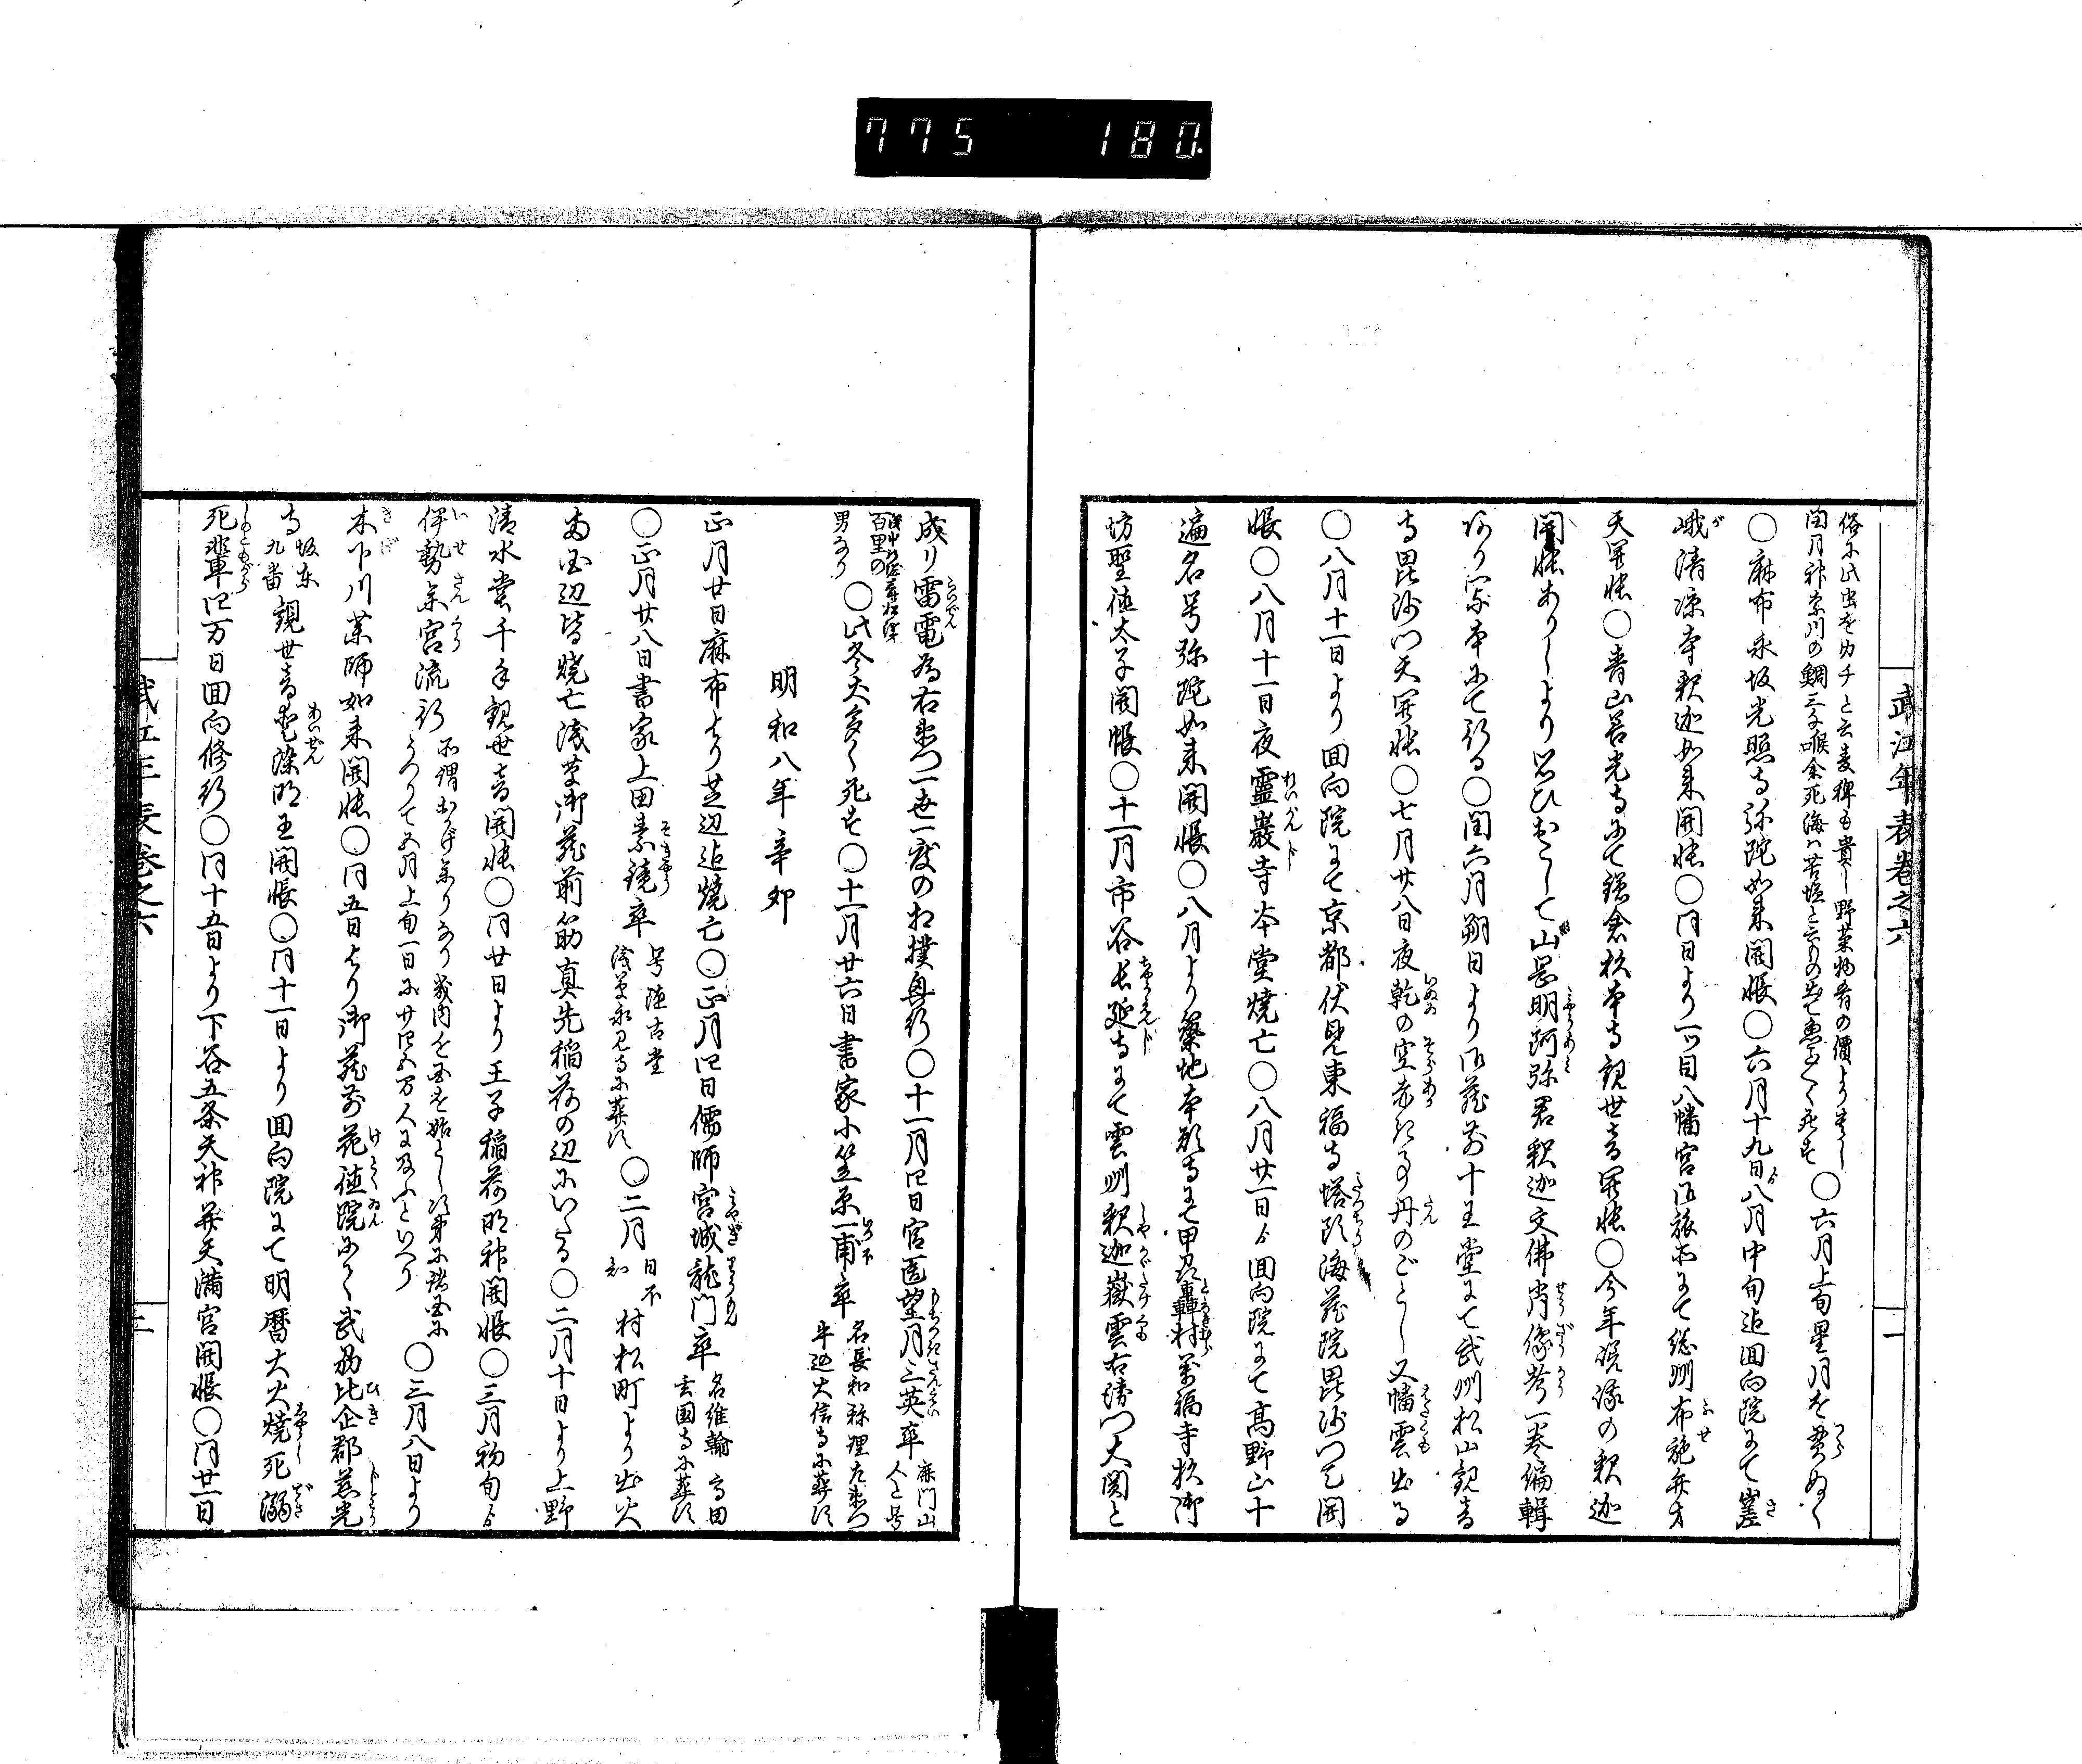 775 180.
武江年表巻之六
一
俗に此虫をカチと云麦稗も貴し野菜物肴の價より
閏月神奈川の鯛三子喉余死海ハ苦塩と死す〇六月上旬星月を貫ぬく
〇麻布永坂光照寺弥陀如来開帳〇六月十九日ゟ八月中旬迄回向院にて嵯
峨清凉寺釈迦如来開帳〇同日より一ツ目八幡宮御旅所にて総州布施弁才
天開帳〇青山善光寺にて鎌倉杉本寺観世音開帳〇今年嵯峨の釈迦
開帳ありしより思ひおこして山岡明阿弥君釈迦文佛肖像考一巻編輯
あり写本にて行る〇閏六月朔日より御蔵前十王堂にて武州松山観音
寺毘沙門天開帳〇七月廿八日夜乾の空赤き事丹のごとし又幡雲出る
〇八月十一日より回向院にて京都伏見東福寺塔頭海蔵院毘沙門天開
帳〇八月十一日夜霊巌寺本堂焼亡〇八月廿一日ゟ回向院にて高野山十
遍名号弥陀如来開帳〇八月より築地本願寺にて甲州轟村萬福寺杉御
坊聖徳太子開帳〇十一月市谷長延寺にて雲州釈迦嶽雲右衛門大関と
成り雷電為右衛門一世一度の相撲興行〇十一月四日官医望月三英卒麻門山人と号
百里の男なり〇此冬犬多く死す〇十一月廿六日書家小笠原一甫卒名長和称理左衛門
牛込大信寺に葬す
明和八年辛卯
正月廿日麻布より芝辺迄焼亡〇正月四日儒師宮城龍門卒名維翰高田
玄国寺に葬す
〇正月廿八日書家上田素鏡卒号渡古堂
浅草永見寺に葬す〇二月日不
知村松町より出火
両国辺皆焼亡浅草御蔵前筋真先稲荷の辺にいたる〇二月十日より上野
清水堂千手観世音開帳〇同廿日より王子稲荷明神開帳〇三月初旬ゟ
伊勢参宮流行所謂おかげ参りなり畿内近国を始とし次第に諸国に
うつりて五月上旬一日に廿四五万人に及ふといへり〇三月八日より
木下川薬師如来開帳〇同五日より御蔵前華徳院にて武州比企郡慈光
寺坂東
九番観世音愛染明王開帳〇同十一日より回向院にて明暦大火焼死溺
死輩四万日回向修行〇同十五日より下谷五条天神并天満宮開帳〇同廿一日
武江年表巻之六
三